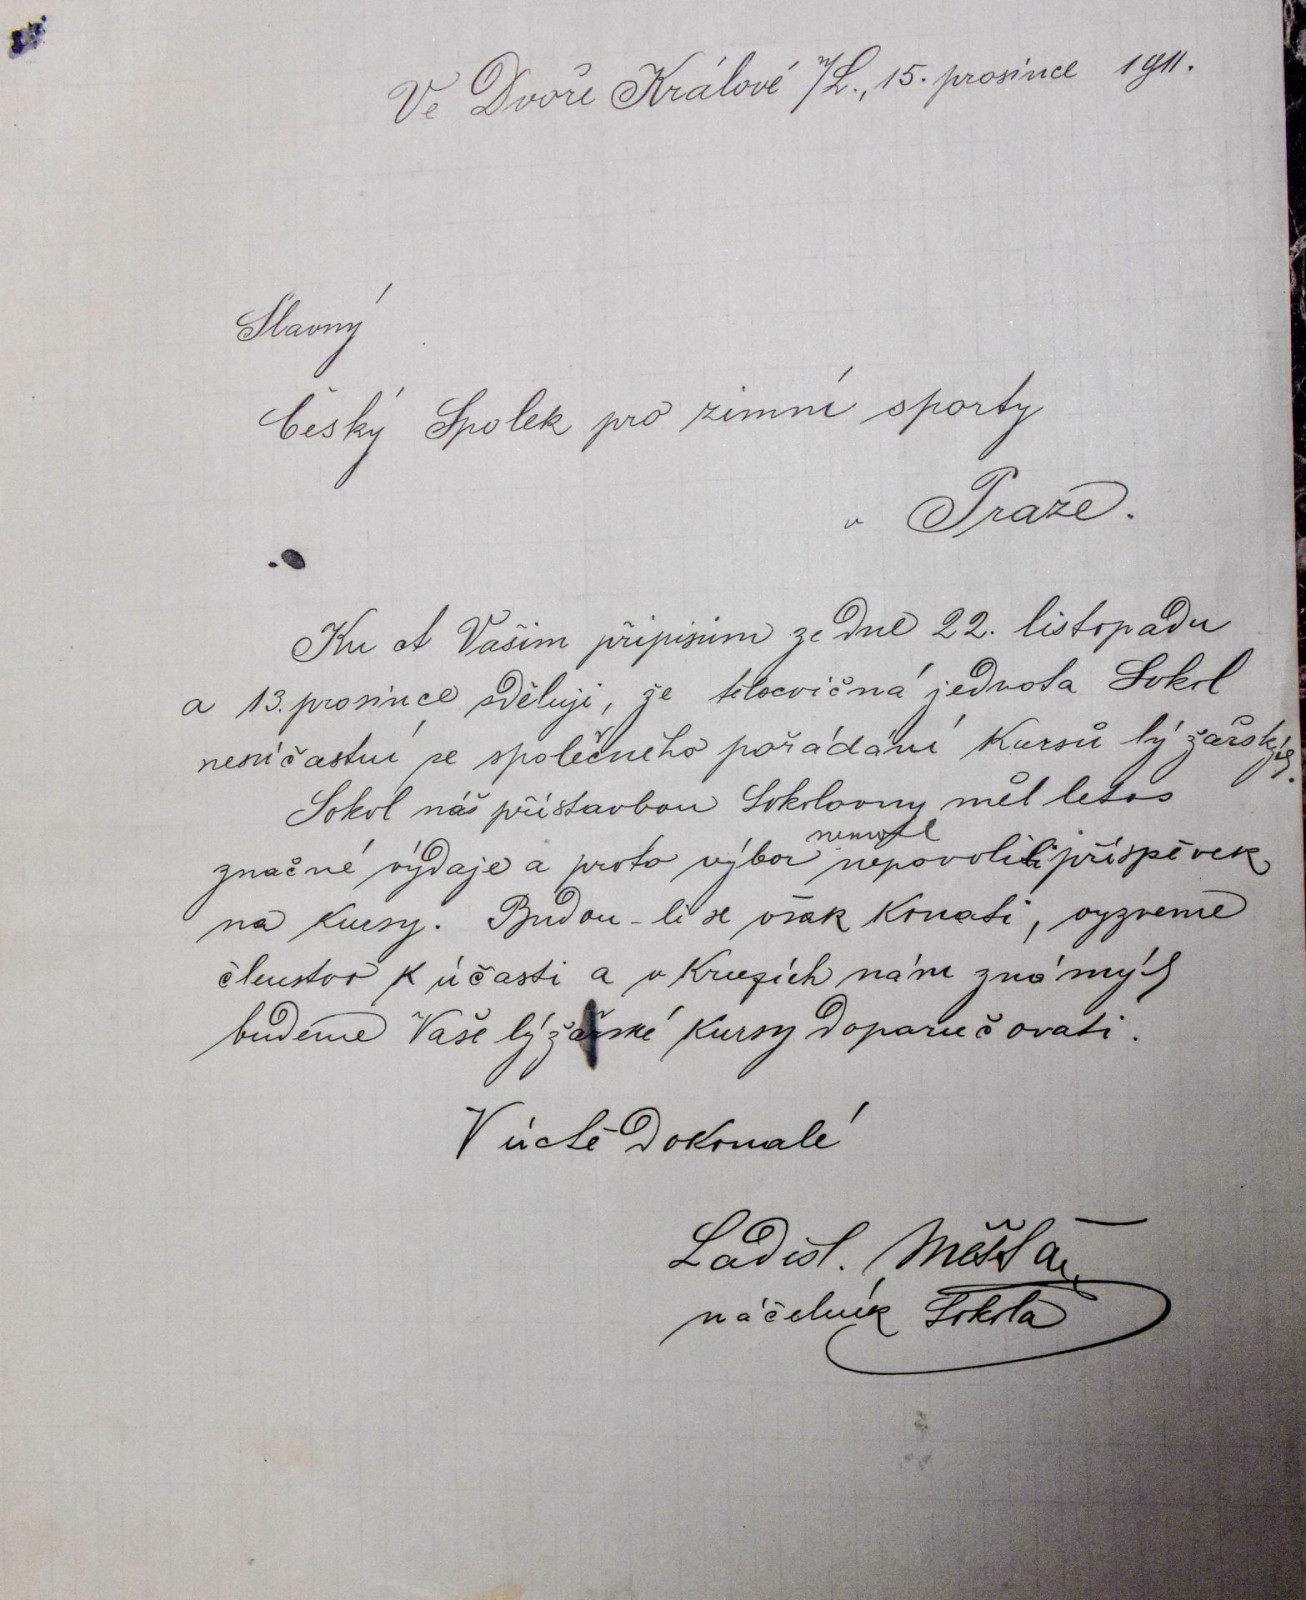 Ve Dvoře Králové n/L., 15. prosince 1911.
Slavný
Český Spolek pro zimní sporty
v Praze.
Ku ct Vašim přípisům ze dne 22. listopadu
a 13. prosince sděluji, že tělocvičná jednota Sokol
nesúčastní se společného pořádání kursů lyžařských.
Sokol náš přístavbou Sokolovny měl letos
značné výdaje a proto výbor nemohl nepovoliti příspěvek
na kursy. Budou-li se však konati, vyzveme
členstvo k účasti a v kruzích nám známých
budeme Vaše lyžařské kursy doporučovati.
V úctě dokonalé
Ladisl.
náčelník Sokola